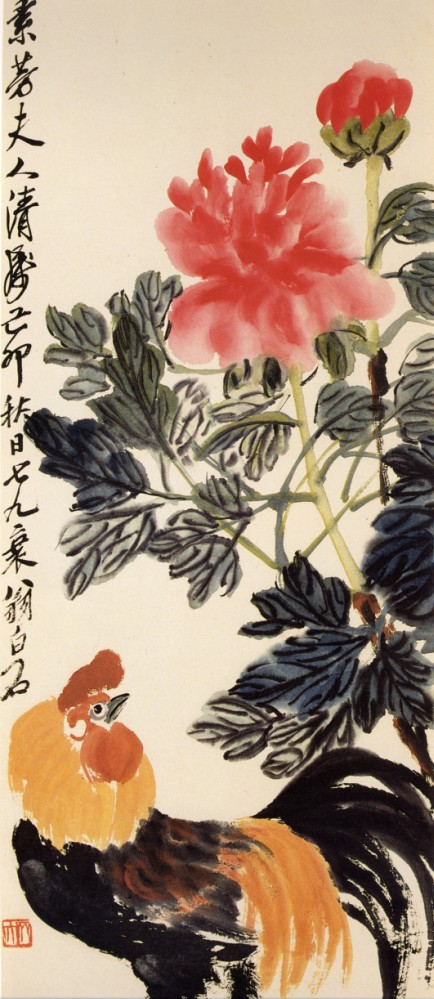 素芳夫人清己卯秋日七九衰翁白石